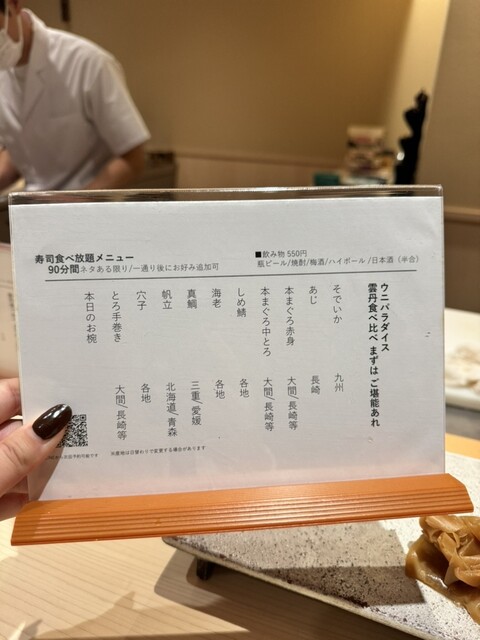 寿司食べ放題メニュー
90分間ネタある限り/一通り後にお好み追加可
■飲み物 550円
瓶ビール/焼酎/梅酒/ハイボール/日本酒（半合）
ウニパラダイス
雲丹食べ比べ まずは ご堪能あれ
そでいか 九州
あじ 長崎
本まぐろ赤身 大間/長崎等
本まぐろ中とろ 大間/長崎等
しめ鯖 各地
海老 各地
真鯛 三重/愛媛
帆立 北海道/青森
穴子 各地
とろ手巻き 大間/長崎等
本日のお椀
※産地は日替わりで変更する場合があります